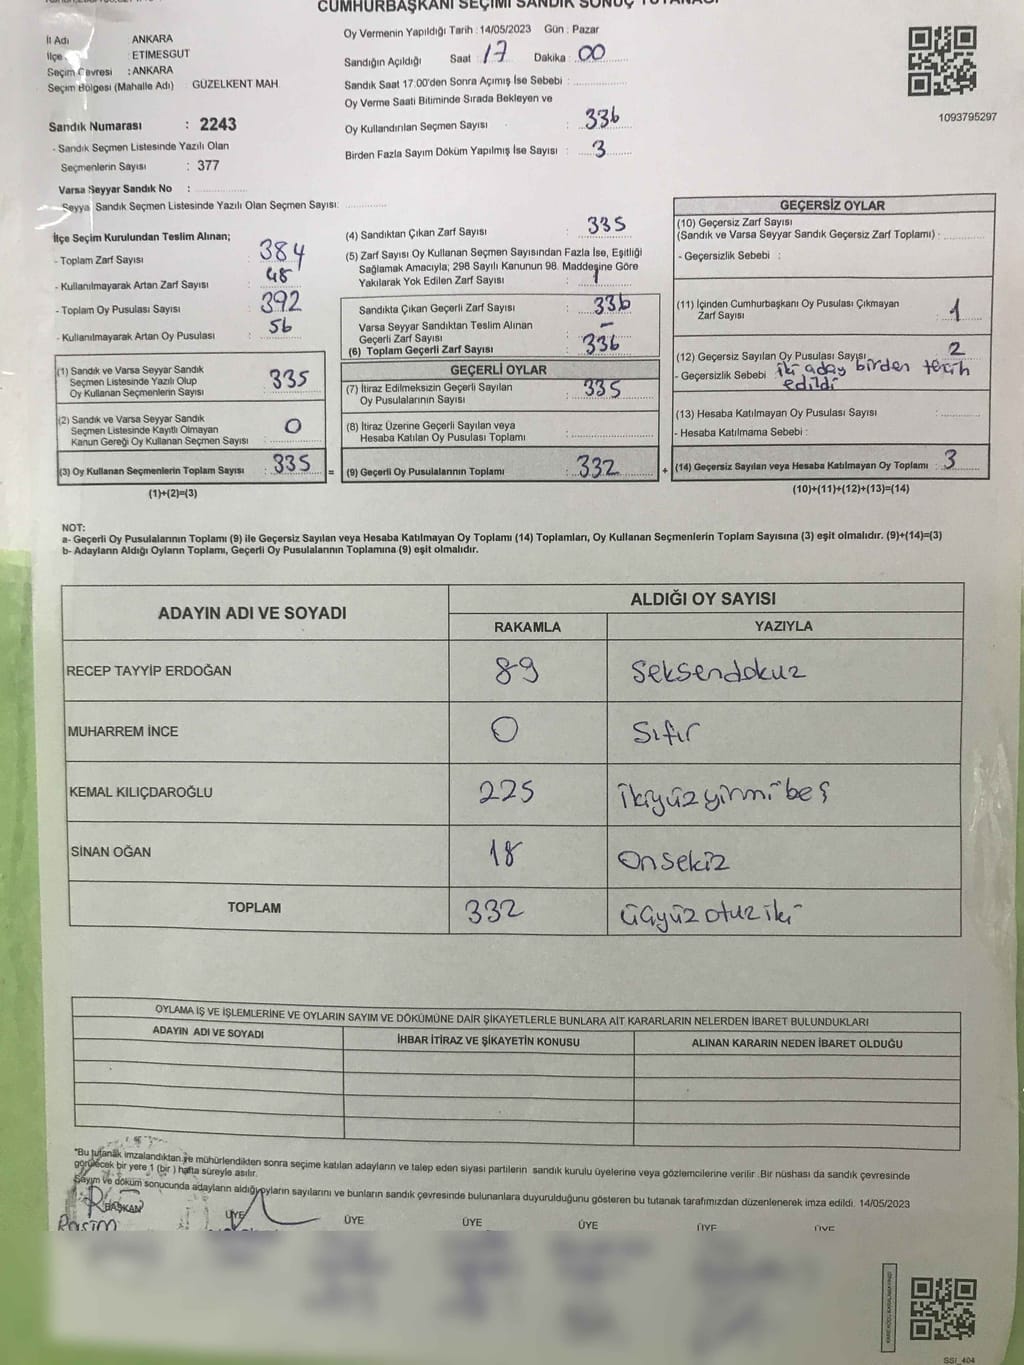 CUMHURBAŞKANI SEÇİMİ SANDIK SONUÇ TUTANAĞI
İl Adı ANKARA
İlçe : ETİMESGUT
Seçim Çevresi : ANKARA
Seçim Bölgesi (Mahalle Adı) : GÜZELKENT MAH
Sandık Numarası : 2243
- Sandık Seçmen Listesinde Yazılı Olan
Seçmenlerin Sayısı : 377
Varsa Seyyar Sandık No :
Seyya Sandık Seçmen Listesinde Yazılı Olan Seçmen Sayısı:
Oy Vermenin Yapıldığı Tarih : 14/05/2023 Gün : Pazar
Sandığın Açıldığı Saat : 17 Dakika : 00
Sandık Saat 17:00'den Sonra Açımış İse Sebebi :
Oy Verme Saati Bitiminde Sırada Bekleyen ve
Oy Kullandırılan Seçmen Sayısı : 336
Birden Fazla Sayım Döküm Yapılmış İse Sayısı : 3
1093795297
İlçe Seçim Kurulundan Teslim Alınan;
- Toplam Zarf Sayısı : 384
- Kullanılmayarak Artan Zarf Sayısı : 48
- Toplam Oy Pusulası Sayısı : 392
- Kullanılmayarak Artan Oy Pusulası : 56
(1) Sandık ve Varsa Seyyar Sandık
Seçmen Listesinde Yazılı Olup
Oy Kullanan Seçmenlerin Sayısı : 335
(2) Sandık ve Varsa Seyyar Sandık
Seçmen Listesinde Kayıtlı Olmayan
Kanun Gereği Oy Kullanan Seçmen Sayısı : 0
(3) Oy Kullanan Seçmenlerin Toplam Sayısı : 335 =
(1)+(2)=(3)
(4) Sandıktan Çıkan Zarf Sayısı : 335
(5) Zarf Sayısı Oy Kullanan Seçmen Sayısından Fazla İse, Eşitliği
Sağlamak Amacıyla; 298 Sayılı Kanunun 98. Maddesine Göre
Yakılarak Yok Edilen Zarf Sayısı : 1
Sandıkta Çıkan Geçerli Zarf Sayısı : 336
Varsa Seyyar Sandıktan Teslim Alınan
Geçerli Zarf Sayısı : -
(6) Toplam Geçerli Zarf Sayısı : 336
GEÇERLİ OYLAR
(7) İtiraz Edilmeksizin Geçerli Sayılan
Oy Pusulalarının Sayısı : 335
(8) İtiraz Üzerine Geçerli Sayılan veya
Hesaba Katılan Oy Pusulası Toplamı :
(9) Geçerli Oy Pusulalarının Toplamı : 332 +
GEÇERSİZ OYLAR
(10) Geçersiz Zarf Sayısı
(Sandık ve Varsa Seyyar Sandık Geçersiz Zarf Toplamı) :
- Geçersizlik Sebebi :
(11) İçinden Cumhurbaşkanı Oy Pusulası Çıkmayan
Zarf Sayısı : 1
(12) Geçersiz Sayılan Oy Pusulası Sayısı 2
- Geçersizlik Sebebi : iki aday birden tercih
edildi
(13) Hesaba Katılmayan Oy Pusulası Sayısı :
- Hesaba Katılmama Sebebi :
(14) Geçersiz Sayılan veya Hesaba Katılmayan Oy Toplamı : 3
(10)+(11)+(12)+(13)=(14)
NOT:
a- Geçerli Oy Pusulalarının Toplamı (9) ile Geçersiz Sayılan veya Hesaba Katılmayan Oy Toplamı (14) Toplamları, Oy Kullanan Seçmenlerin Toplam Sayısına (3) eşit olmalıdır. (9)+(14)=(3)
b- Adayların Aldığı Oyların Toplamı, Geçerli Oy Pusulalarının Toplamına (9) eşit olmalıdır.
ADAYIN ADI VE SOYADI ALDIĞI OY SAYISI
RAKAMLA YAZIYLA
RECEP TAYYİP ERDOĞAN 89 Seksendokuz
MUHARREM İNCE 0 Sıfır
KEMAL KILIÇDAROĞLU 225 ikiyüzyirmibeş
SİNAN OĞAN 18 Onsekiz
TOPLAM 332 üçyüzotuziki
OYLAMA İŞ VE İŞLEMLERİNE VE OYLARIN SAYIM VE DÖKÜMÜNE DAİR ŞİKAYETLERLE BUNLARA AİT KARARLARIN NELERDEN İBARET BULUNDUKLARI
ADAYIN ADI VE SOYADI İHBAR İTİRAZ VE ŞİKAYETİN KONUSU ALINAN KARARIN NEDEN İBARET OLDUĞU
*Bu tutanak imzalandıktan ve mühürlendikten sonra seçime katılan adayların ve talep eden siyasi partilerin sandık kurulu üyelerine veya gözlemcilerine verilir .Bir nüshası da sandık çevresinde
görülecek bir yere 1 (bir ) hafta süreyle asılır.
Sayım ve döküm sonucunda adayların aldığı oyların sayılarını ve bunların sandık çevresinde bulunanlara duyurulduğunu gösteren bu tutanak tarafımızdan düzenlenerek imza edildi. 14/05/2023
BAŞKAN ÜYE ÜYE ÜYE ÜYE ÜYE ÜYE
Rasim
SSI_404